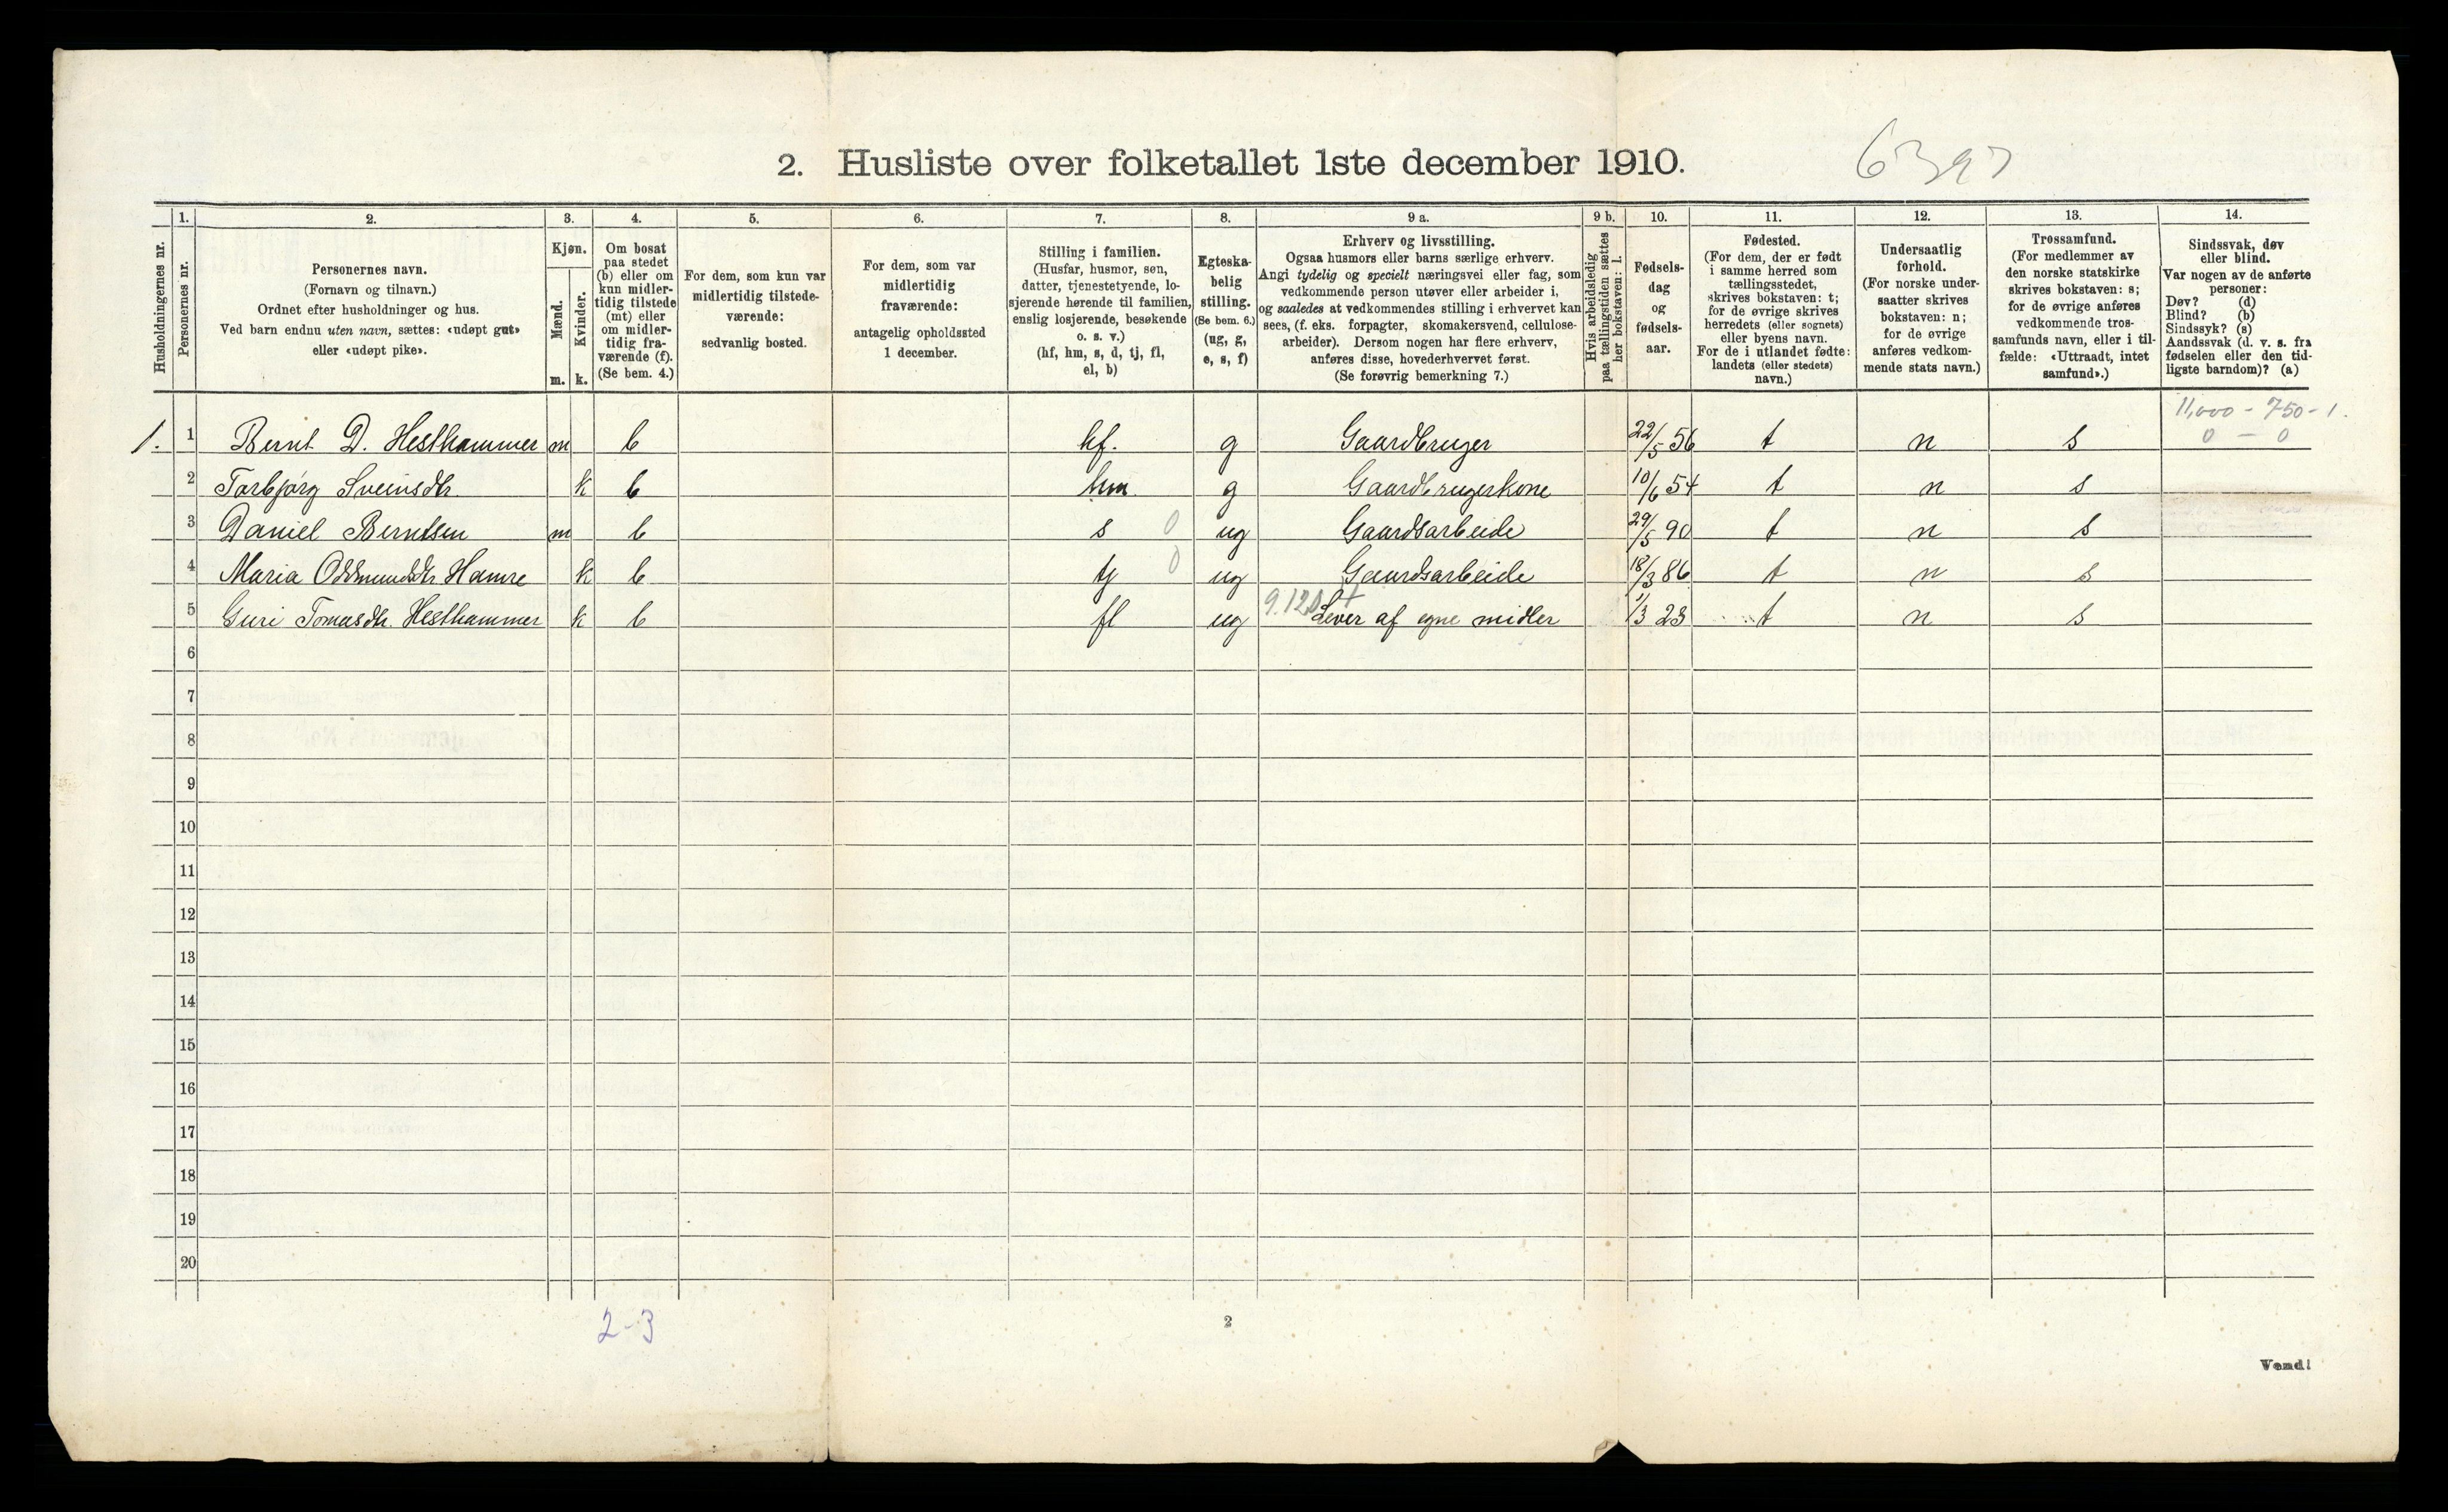 2. Husliste over folketallet 1ste december 1910.
6397
Husholdningernes nr.
1.
Personernes nr.
2.
Personernes navn.
(Fornavn og tilnavn.)
Ordnet efter husholdninger og hus.
Ved barn endnu uten navn, sættes: «udøpt gut»
eller «udøpt pike».
3.
Kjøn.
Mænd.
Kvinder.
m. k.
4.
Om bosat
paa stedet
(b) eller om
kun midler-
tidig tilstede
(mt) eller
om midler-
tidig fra-
værende (f).
(Se bem. 4.)
5.
For dem, som kun var
midlertidig tilstede-
værende:
sedvanlig bosted.
6.
For dem, som var
midlertidig
fraværende:
antagelig opholdssted
1 december.
7.
Stilling i familien.
(Husfar, husmor, søn,
datter, tjenestetyende, lo-
sjerende hørende til familien,
enslig losjerende, besøkende
o. s. v.)
(hf, hm, s, d, tj, fl,
el, b)
8.
Egteska-
belig
stilling.
(Se bem. 6.)
(ug, g,
e, s, f)
9 a.
Erhverv og livsstilling.
Ogsaa husmors eller barns særlige erhverv.
Angi tydelig og specielt næringsvei eller fag, som
vedkommende person utøver eller arbeider i,
og saaledes at vedkommendes stilling i erhvervet kan
sees, (f. eks. forpagter, skomakersvend, cellulose-
arbeider). Dersom nogen har flere erhverv,
anføres disse, hovederhvervet først.
(Se forøvrig bemerkning 7.)
9 b.
Hvis arbeidsledig
paa tællingstiden sættes
her bokstaven: l.
10.
Fødsels-
dag
og
fødsels-
aar.
11.
Fødested.
(For dem, der er født
i samme herred som
tællingsstedet,
skrives bokstaven: t;
for de øvrige skrives
herredets (eller sognets)
eller byens navn.
For de i utlandet fødte:
landets (eller stedets)
navn.)
12.
Undersaatlig
forhold.
(For norske under-
saatter skrives
bokstaven: n;
for de øvrige
anføres vedkom-
mende stats navn.)
13.
Trossamfund.
(For medlemmer av
den norske statskirke
skrives bokstaven: s;
for de øvrige anføres
vedkommende tros-
samfunds navn, eller i til-
fælde: «Uttraadt, intet
samfund».)
14.
Sindssvak, døv
eller blind.
Var nogen av de anførte
personer:
Døv? (d)
Blind? (b)
Sindssyk? (s)
Aandssvak (d. v. s. fra
fødselen eller den tid-
ligste barndom)? (a)
11,000 - 750 - 1.
1. 1 Bernt D. Hesthammer m b hf. g Gaardbruger 22/5 56 t n s 0 - 0
2 Torbjørg Sveinsdtr. k b hm g Gaardbrugerkone 10/6 54 t n s
3 Daniel Berntsen m b s 0 ug Gaardsarbeide 29/5 90 t n s
4 Maria Oddmundsdtr Hamre k b tj 0 ug Gaardsarbeide 18/3 86 t n s
5 Guri Tomasdtr. Hesthammer k b fl ug 9.120 Lever af egne midler 1/3 23 t n s
6
7
8
9
10
11
12
13
14
15
16
17
18
19
20
2-3
2
Vend!